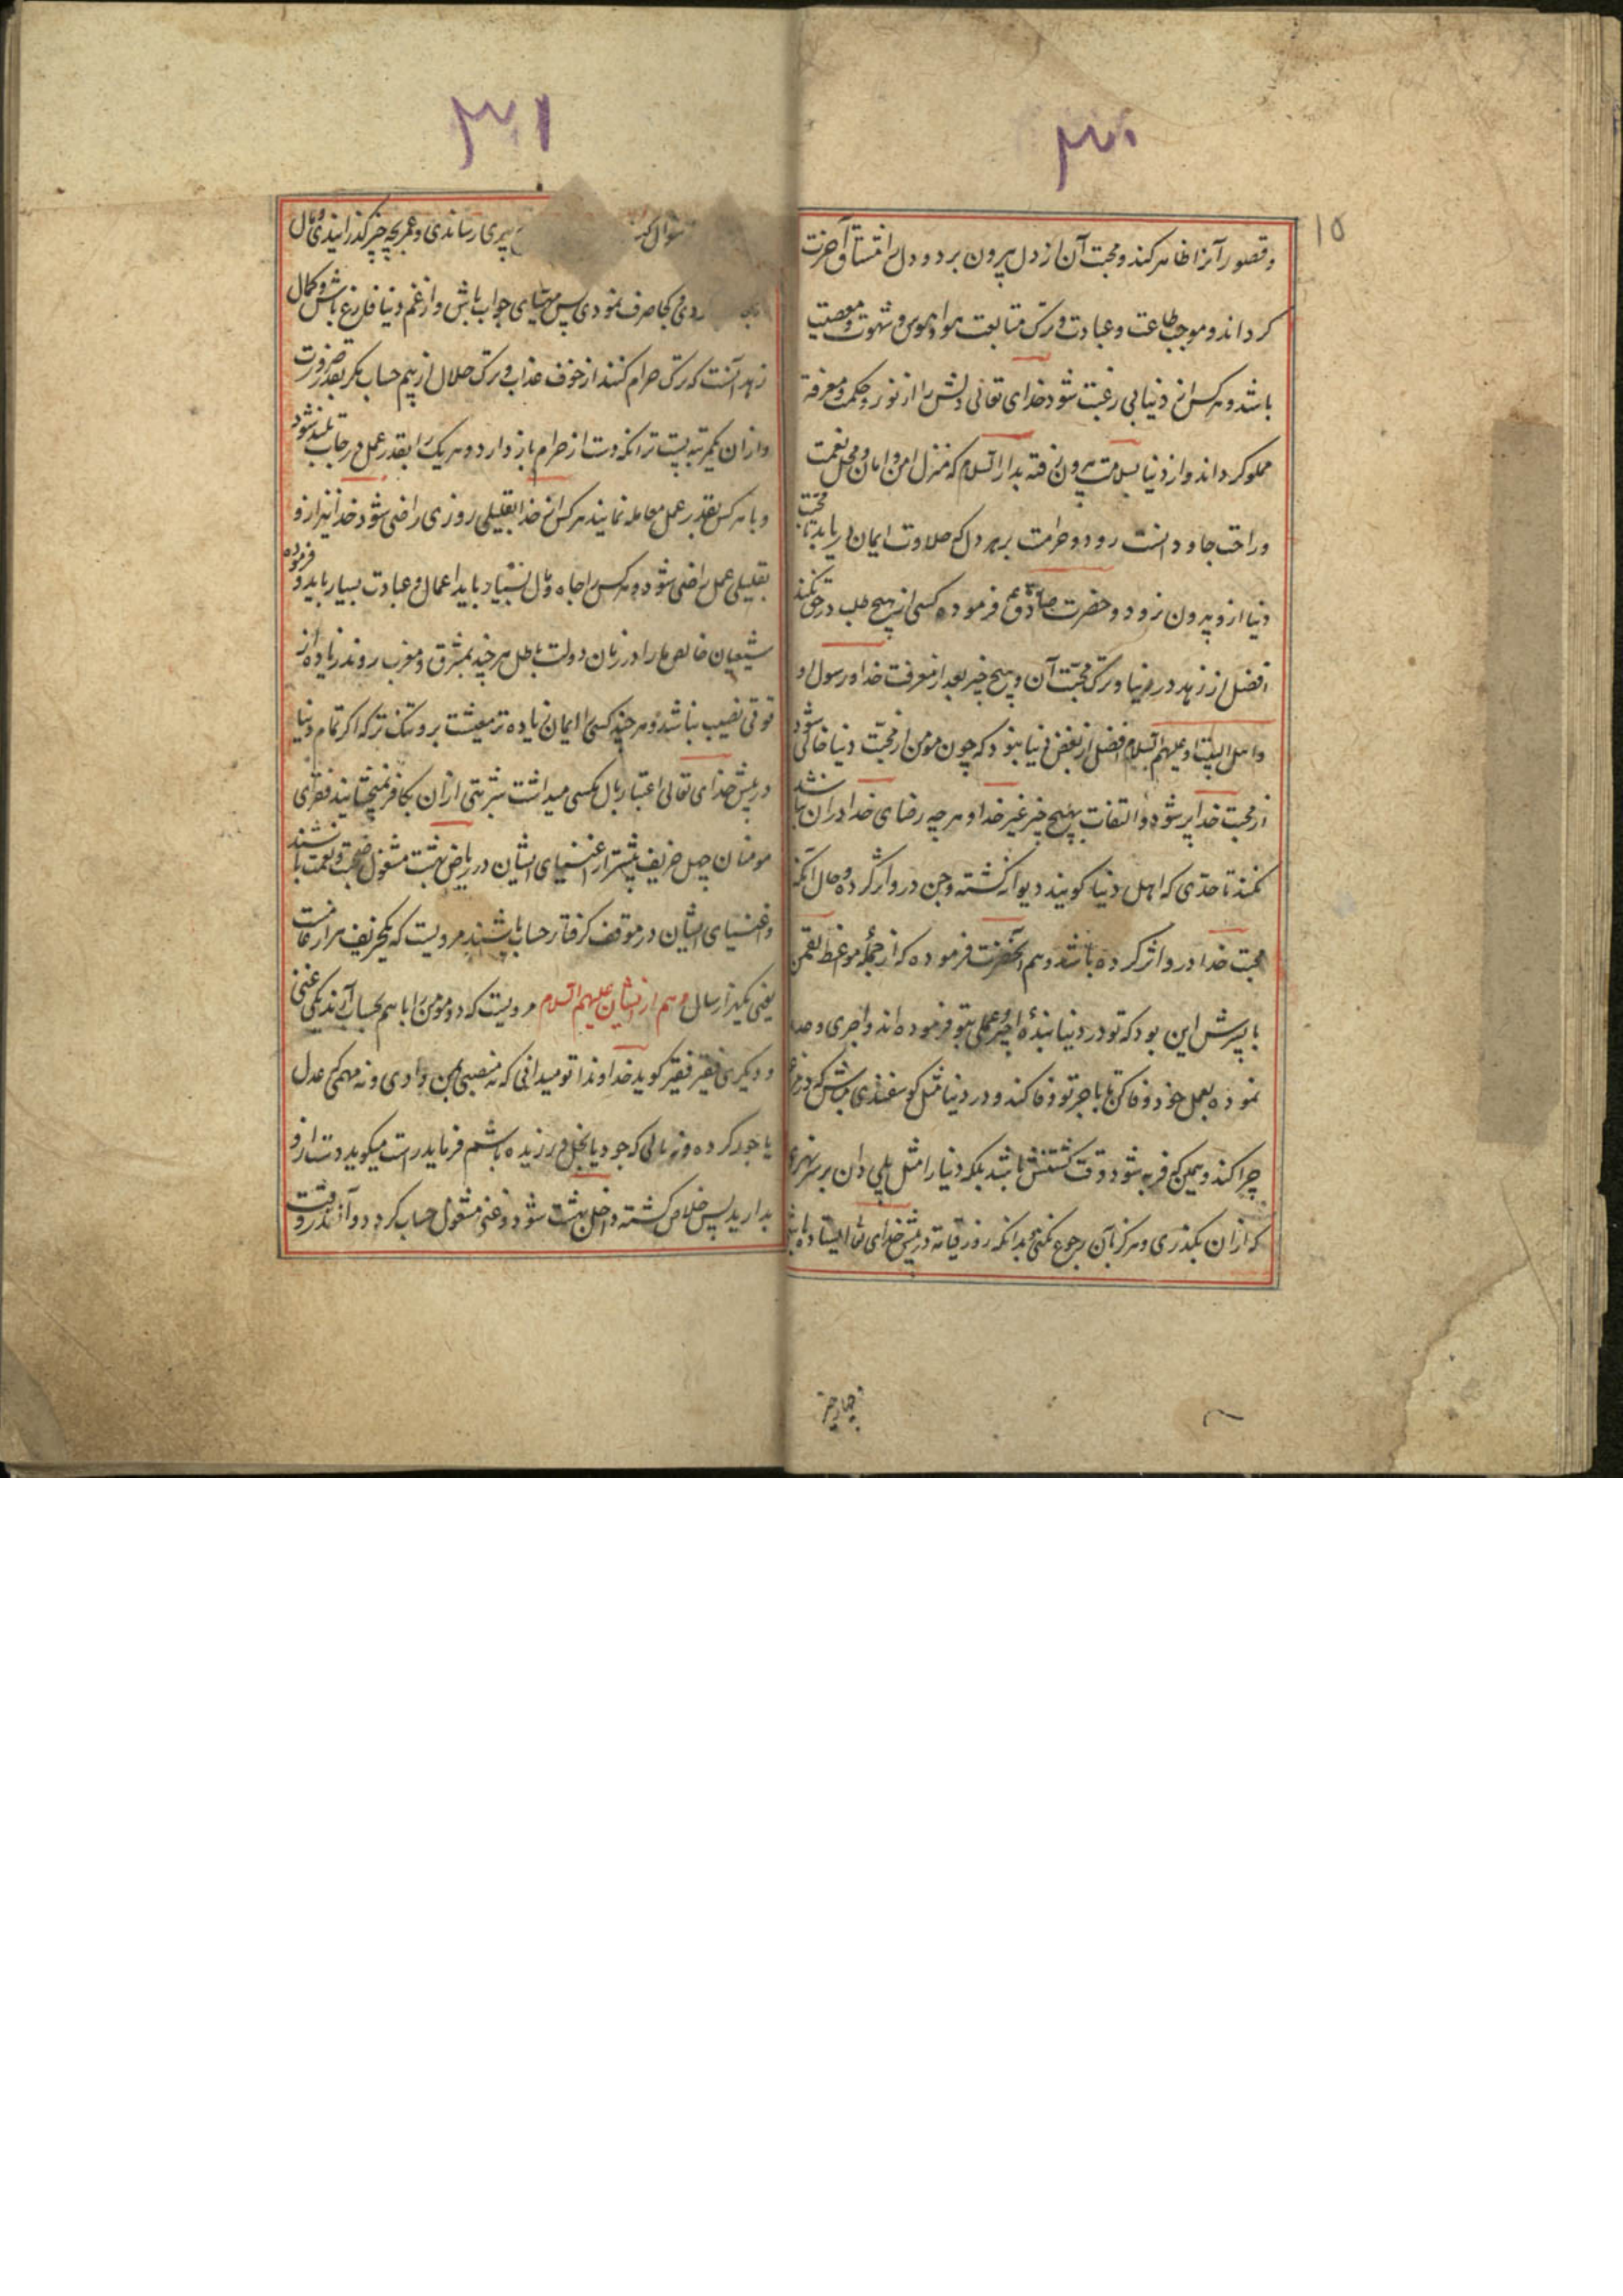 ۳۰
۱۵
و قصور آنرا ظاهر کند و محبت آن از دل بیرون برد و دل را مشتاق آخرت
گرداند و موجب طاعت و عبادت و ترک متابعت هوا و هوس و شهوت و معصیت
باشد و هر کس از دنیا بی رغبت شود خدای تعالی دلش را از نور و حکمت و معرفة
مملو گرداند و از دنیا بسلامت بیرون رفته بدار السلام که منزل امن و امان و محل نعمت
و راحت جاودانست رود و حرامست بر هر دل که حلاوت ایمان دریابد تا محبت
دنیا ازو بیرون نرود و حضرت صادق ع فرموده کسی از هیچ طلب در حق نکند
افضل از زهد در دنیا و ترک محبت آن و هیچ چیز بعد از معرفت خدا و رسول او
و اهل البیت او علیهم السلام افضل از بغض دنیا نبود که چون مومن از محبت دنیا خالی شود
از محبت خدا پر شود و التفات بهیچ چیز غیر خدا و هر چه رضای خدا در آن نباشد
نکند تا حدی که اهل دنیا گویند دیوانه گشته و جن درو اثر کرده و حال آنکه
محبت خدا درو اثر کرده باشد و هم آنحضرت فرموده که از جمله مواعظ لقمن
با پسرش این بود که تو در دنیا بندهٔ اجیر و عملی بتو فرموده اند و اجری وعده
نموده بعمل خود وفا کن تا باجر تو وفا کند و در دنیا مثل گوسفندی مباش که در مرغ
چرا کند و همین که فربه شود وقت کشتنش باشد بلکه دنیا را مثل پلی دان بر سر نهر
که از ان بگذری و هرگز بآن رجوع نکنی و بدانکه روز قیامة در پیش خدای تعا ایستاده باشی
۳۱
سوال کنند پیری رساندی و عمر بچه چیز گذرانیدی و مال
ردی و کجا صرف نمودی پس مهیای جواب باش و از غم دنیا فارغ باش و کمال
زهد آنست که ترک حرام کنند از خوف عذاب و ترک حلال از بیم حساب مگر بقدر ضرورت
و از ان یکمرتبه پست تر آنکه دست از حرام باز دارد و هر یک را بقدر عمل درجات بلند شود
و با هر کس بقدر عمل معامله نمایند هر کس از خدا بقلیلی روزی راضی شود خدا نیز ازو
بقلیلی عمل راضی شود و هر کس را جاه و مال بسیار باید اعمال و عبادت بسیار باید و فرموده
شیعیان خالص ما را در زمان دولت باطل هر چند بمشرق و مغرب روند زیاده از
قوتی نصیب نباشد و هر چند کسی را ایمان زیاده تر معیشت برو تنک تر که اگر تمام دنیا
در پیش خدای تعالی اعتبار بال مکسی میداشت شربتی از ان بکافر نمیچشانیند فقرای
مومنان چهل خریف پیشتر از اغنیای ایشان در ریاض بهشت مشغول صحبت و نعمت باشند
و اغنیای ایشان در موقف گرفتار حساب باشند مرویست که یکخریف هزار عامست
یعنی یکهزار سال و هم از ایشان علیهم السلام مرویست که دو مومن را با هم بحساب آرند یکی غنی
و دیگری فقیر فقیر گوید خداوندا تو میدانی که نه منصبی بمن دادی و نه مهمی که عدل
یا جور کرده و نه مالی که جود یا بخل ورزیده باشم فرماید راست میگوید دست ازو
بدارید پس خلاص گشته داخل بهشت شود و غنی مشغول حساب گردد و آنقدر وقت